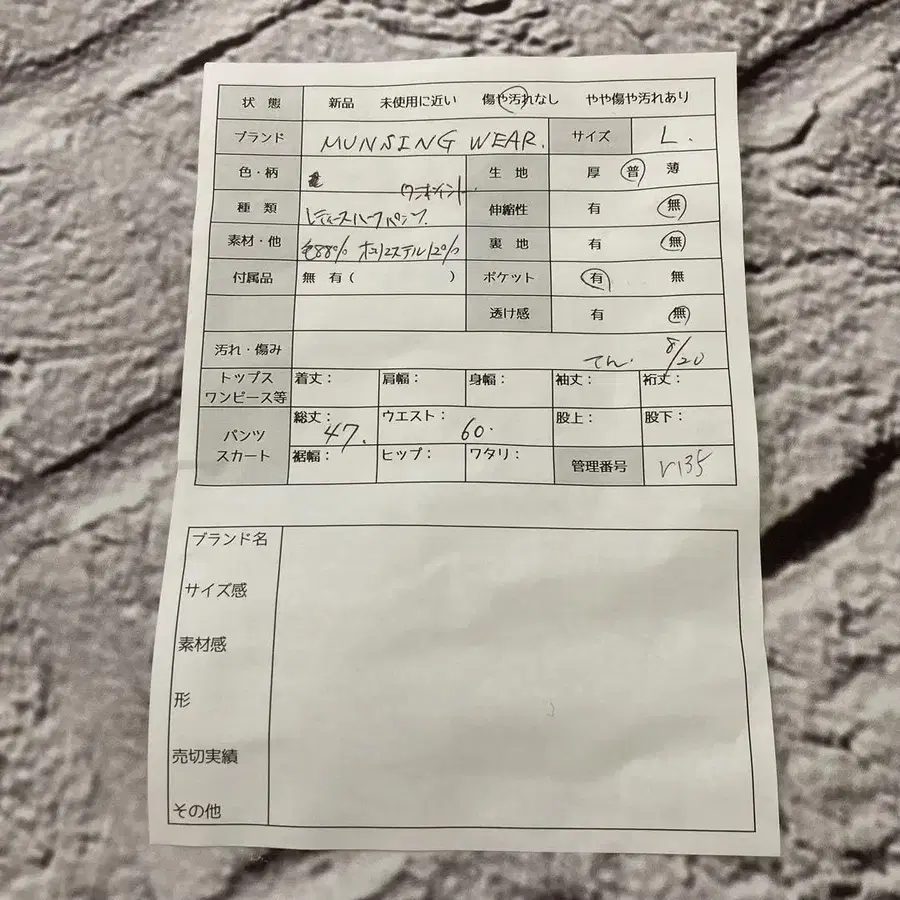 状態 新品 未使用に近い 傷や汚れなし やや傷や汚れあり
ブランド MUNSING WEAR. サイズ L.
色・柄 ワンポイント 生地 厚 普 薄
種類 レディースハーフパンツ 伸縮性 有 無
素材・他 毛88% ポリエステル12% 裏地 有 無
付属品 無 有( ) ポケット 有 無
透け感 有 無
汚れ・傷み てん. 8/20
トップス ワンピース等 着丈: 肩幅: 身幅: 袖丈: 裄丈:
パンツ スカート 総丈: 47. ウエスト: 60. 股上: 股下:
裾幅: ヒップ: ワタリ: 管理番号 r135
ブランド名
サイズ感
素材感
形
売切実績
その他